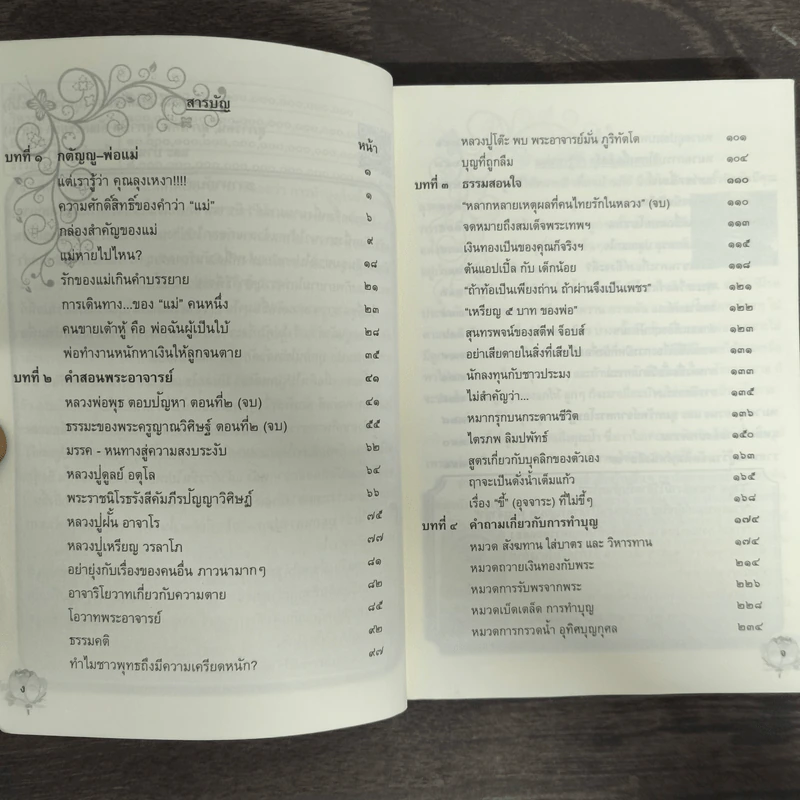 สารบัญ
หน้า
บทที่ ๑ กตัญญู-พ่อแม่ ๑
แต่เรารู้ว่า คุณลุงเหงา!!!! ๑
ความศักดิ์สิทธิ์ของคำว่า "แม่" ๖
กล่องสำคัญของแม่ ๙
แม่หายไปไหน? ๑๘
รักของแม่เกินคำบรรยาย ๒๑
การเดินทาง...ของ "แม่" คนหนึ่ง ๒๓
คนขายเต้าหู้ คือ พ่อฉันผู้เป็นใบ้ ๒๘
พ่อทำงานหนักหาเงินให้ลูกจนตาย ๓๕
บทที่ ๒ คำสอนพระอาจารย์ ๔๑
หลวงพ่อพุธ ตอบปัญหา ตอนที่๒ (จบ) ๔๑
ธรรมะของพระครูญาณวิศิษฐ์ ตอนที่๒ (จบ) ๕๕
มรรค - หนทางสู่ความสงบระงับ ๖๒
หลวงปู่ดูลย์ อตุโล ๖๔
พระราชนิโรธรังสีคัมภีรปัญญาวิศิษฏ์ ๖๖
หลวงปู่ฝั้น อาจาโร ๗๕
หลวงปู่เหรียญ วรลาโภ ๗๗
อย่ายุ่งกับเรื่องของคนอื่น ภาวนามากๆ ๘๑
อาจาริโยวาทเกี่ยวกับความตาย ๘๒
โอวาทพระอาจารย์ ๘๕
ธรรมคติ ๙๒
ทำไมชาวพุทธถึงมีความเครียดหนัก? ๙๗
ง
หลวงปู่โต๊ะ พบ พระอาจารย์มั่น ภูริทัตโต ๑๐๑
บุญที่ถูกลืม ๑๐๔
บทที่ ๓ ธรรมสอนใจ ๑๑๐
"หลากหลายเหตุผลที่คนไทยรักในหลวง" (จบ) ๑๑๐
จดหมายถึงสมเด็จพระเทพฯ ๑๑๓
เงินทองเป็นของคุณก็จริงฯ ๑๑๕
ต้นแอปเปิ้ล กับ เด็กน้อย ๑๑๘
"ถ้าท้อเป็นเพียงถ่าน ถ้าผ่านจึงเป็นเพชร" ๑๒๑
"เหรียญ ๕ บาท ของพ่อ" ๑๒๒
สุนทรพจน์ของสตีฟ จ็อบส์ ๑๒๓
อย่าเสียดายในสิ่งที่เสียไป ๑๓๑
นักลงทุนกับชาวประมง ๑๓๓
ไม่สำคัญว่า... ๑๓๕
หมากรุกบนกระดานชีวิต ๑๓๖
ไตรภพ ลิมปพัทธ์ ๑๕๐
สูตรเกี่ยวกับบุคลิกของตัวเอง ๑๖๓
ฤาจะเป็นดั่งน้ำเต็มแก้ว ๑๖๕
เรื่อง "ขี้" (อุจจาระ) ที่ไม่ขี้ๆ ๑๖๘
บทที่ ๔ คำถามเกี่ยวกับการทำบุญ ๑๗๔
หมวด สังฆทาน ใส่บาตร และ วิหารทาน ๑๗๔
หมวดถวายเงินทองกับพระ ๒๑๔
หมวดการรับพรจากพระ ๒๒๖
หมวดเบ็ดเตล็ด การทำบุญ ๒๒๘
หมวดการกรวดน้ำ อุทิศบุญกุศล ๒๓๔